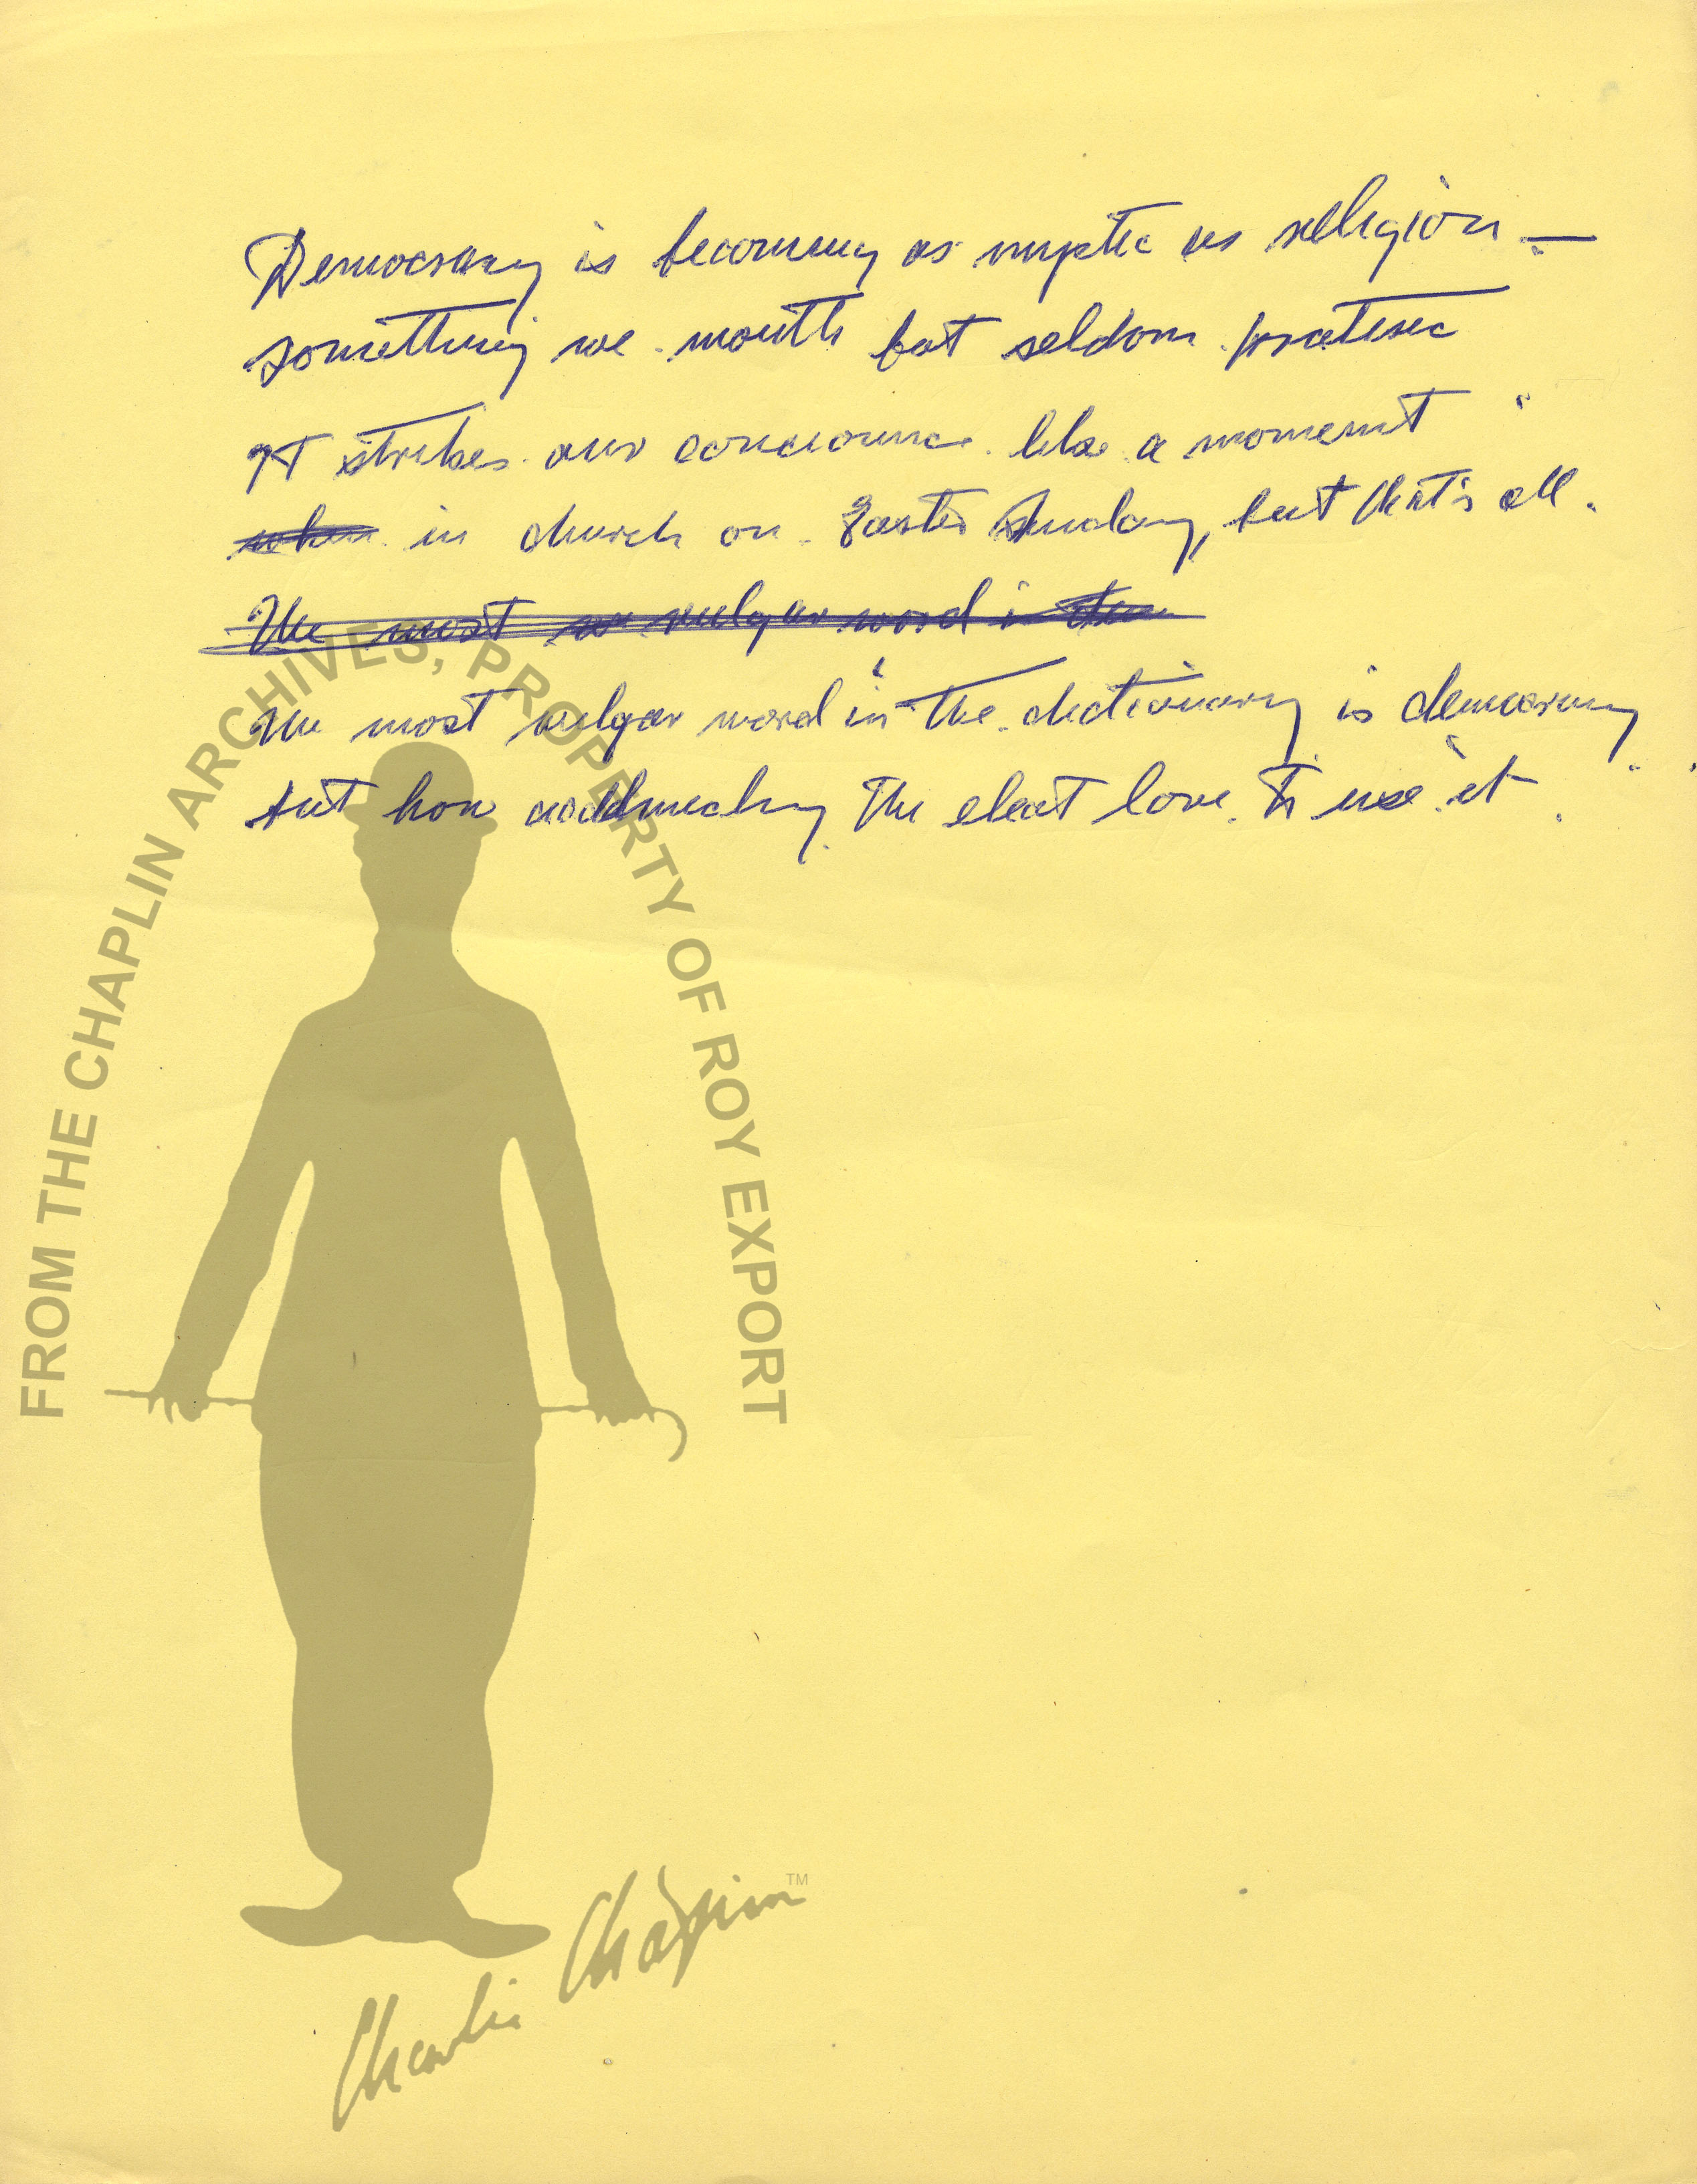 Democracy is becoming as mystic as religion —
something we mouth but seldom pratise
It strikes our like a moment
when in church on Easter Sunday, but that's all.
The most vulgar word is
The most vulgar word in the dictionary is democracy
but how the elect love to use it.
FROM THE CHAPLIN ARCHIVES, PROPERTY OF ROY EXPORT
Charlie Chaplin™